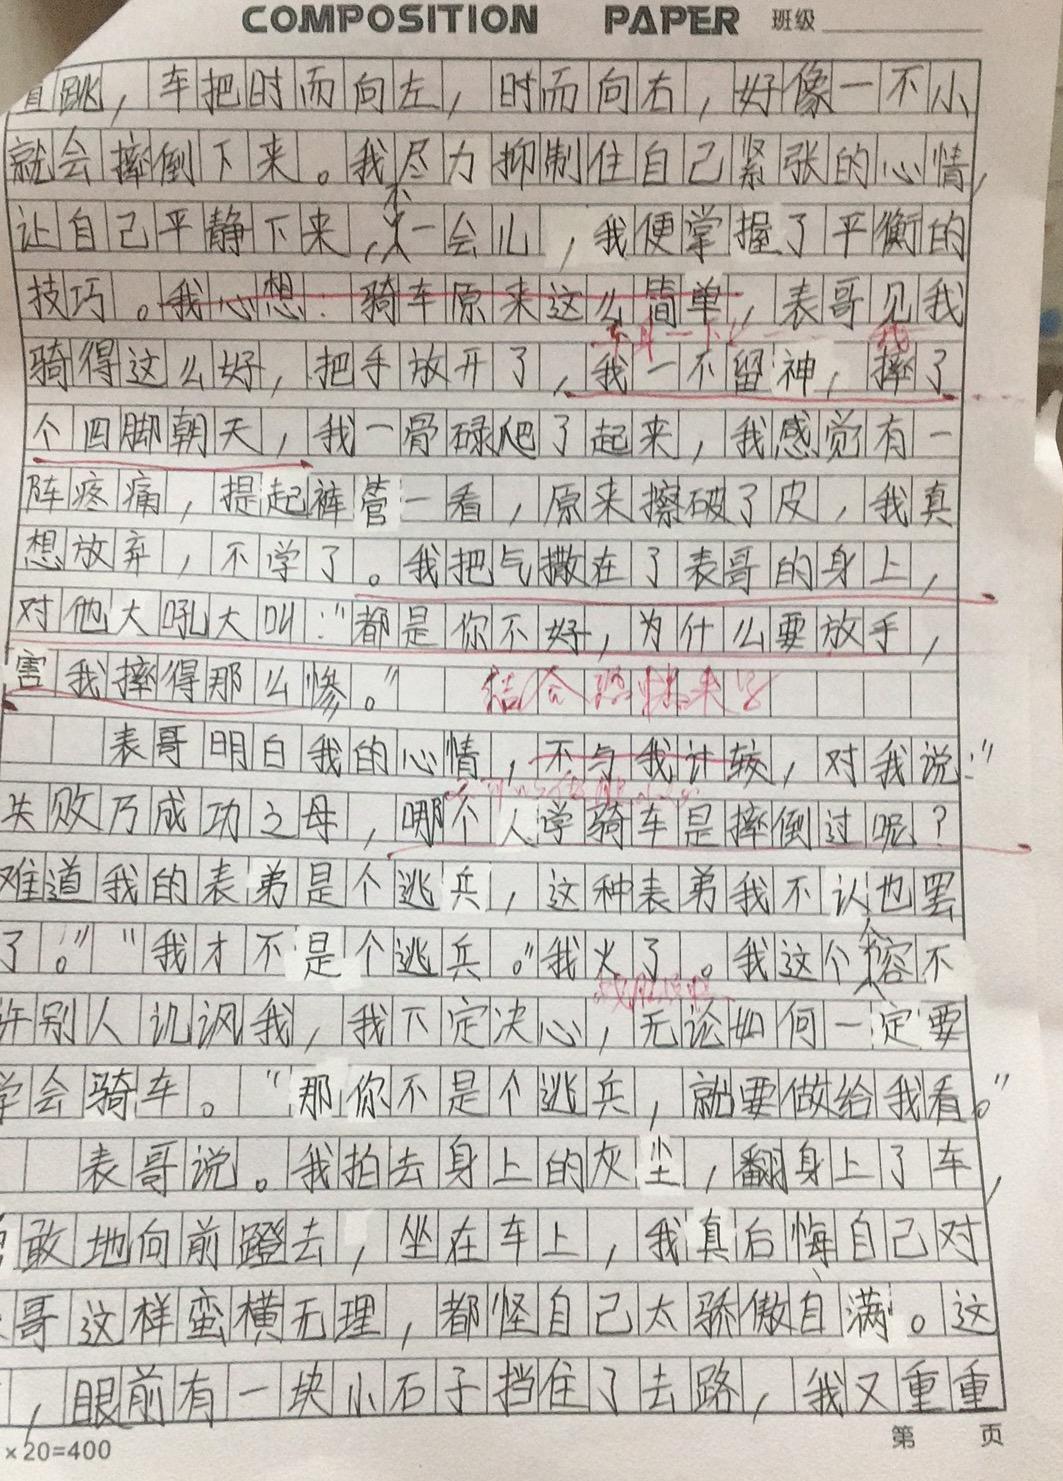 COMPOSITION PAPER 班级
直跳，车把时而向左，时而向右，好像一不小
就会摔倒下来。我尽力抑制住自己紧张的心情，
让自己平静下来，不一会儿，我便掌握了平衡的
技巧。我心想：骑车原来这么简单，表哥见我
骑得这么好，把手放开了，我一不留神，摔了
个四脚朝天，我一骨碌爬了起来，我感觉有一
阵疼痛，提起裤管一看，原来擦破了皮，我真
想放弃，不学了。我把气撒在了表哥的身上，
对他大吼大叫：“都是你不好，为什么要放手，
害我摔得那么惨。”
表哥明白我的心情，不与我计较，对我说：“
失败乃成功之母，哪个人学骑车是摔倒过呢？
难道我的表弟是个逃兵，这种表弟我不认也罢
了。”“我才不是个逃兵。”我火了。我这个人容不
许别人讥讽我，我下定决心，无论如何一定要
学会骑车。“那你不是个逃兵，就要做给我看。”
表哥说。我拍去身上的灰尘，翻身上了车，
勇敢地向前蹬去，坐在车上，我真后悔自己对
表哥这样蛮横无理，都怪自己太骄傲自满。这
，眼前有一块小石子挡住了去路，我又重重
×20=400 第 页